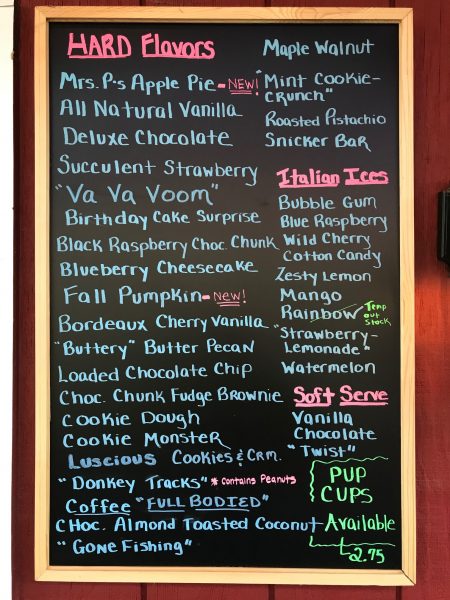 HARD Flavors
Mrs. P's Apple Pie - NEW!
All Natural Vanilla
Deluxe Chocolate
Succulent Strawberry
"Va Va Voom"
Birthday Cake Surprise
Black Raspberry Choc. Chunk
Blueberry Cheesecake
Fall Pumpkin - New!
Bordeaux Cherry Vanilla
"Buttery" Butter Pecan
Loaded Chocolate Chip
Choc. Chunk Fudge Brownie
Cookie Dough
Cookie Monster
Luscious Cookies & Crm.
"Donkey Tracks" * Contains Peanuts
Coffee "FULL BODIED"
CHOC. Almond Toasted Coconut
"Gone Fishing"
Maple Walnut
"Mint Cookie-
Crunch"
Roasted Pistachio
Snicker Bar
Italian Ices
Bubble Gum
Blue Raspberry
Wild Cherry
Cotton Candy
Zesty Lemon
Mango
Rainbow Temp
out
Stock
"Strawberry-
Lemonade"
Watermelon
Soft Serve
Vanilla
Chocolate
"Twist"
PUP
CUPS
Available
2.75